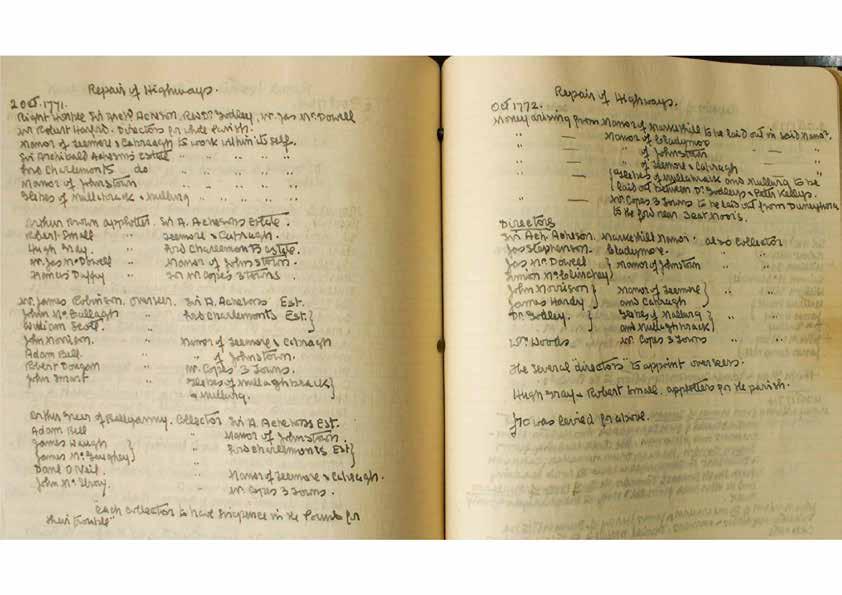 Repair of Highways.
2 Oct. 1771.
Right Honble Sir Archd Acheson, Revd Dr Godley, Mr Jas McDowell
Mr Robert Harford. Directors for whole Parish.
Manor of Teemore & Cabragh to work within itself.
Sir Archibald Achesons Estate " " " "
Lord Charlemonts do " " " "
Manor of Johnstown " " " "
Glebes of Mullabrack & Mullurg " " " "
Arthur Brown applotter. Sir A. Achesons Estate.
Robert Small " Teemore & Cabragh.
Hugh Gray " Lord Charlemonts estate.
Mr Jas McDowell " Manor of Johnstown.
Francis Duffy " In Mr Copes 3 Towns.
Mr James Robinson. overseer. Sir A. Achesons Est.
John McCullagh " Lord Charlemonts Est. }
William Scott. " }
John Morrison. " Manor of Teemore & Cabragh
Adam Bell " " of Johnstown.
Robert Dougan " Mr Copes 3 Towns.
John Smart " Glebes of Mullaghbrack }
& Mullurg. }
Arthur Greer of Ballyanny. Collector Sir A. Achesons Est.
Adam Bell " Manor of Johnstown.
James Waugh } " Lord Charlemonts Est }
James McGaughey } " }
Danl O'Neil. " Manor of Teemore & Cabragh.
John McIlroy. " Mr Copes 3 Towns.
"Each collector to have sixpence in the Pound for
their trouble"
Repair of Highways.
Oct 1772.
Money arising from Manor of Markethill to be laid out in said Manor.
" — Manor of Gladymore "
" — " of Johnstown — "
" — " of Teemore & Cabragh — "
" — { Glebes of Mullabrack and Mullurg to be
{ laid out between Dr Godleys & Peter Kellys.
" Mr Copes 3 Towns to be laid out from
to the ford near
Directors
Sir Arch. Acheson. Markethill Manor. also Collector
Jas Stephenson. Gladymore. " "
Jas McDowell } Manor of Johnstown " "
Simon McGlinchey }
John Morrison } Manor of Teemore } "
James Hardy } and Cabragh }
Dr Godley. } Glebes of Mullurg } "
and Mullaghbrack }
Wm Woods Mr Copes 3 Towns "
The several "directors" to appoint overseers.
Hugh Gray & Robert Small. applotters for the parish.
was levied for above.